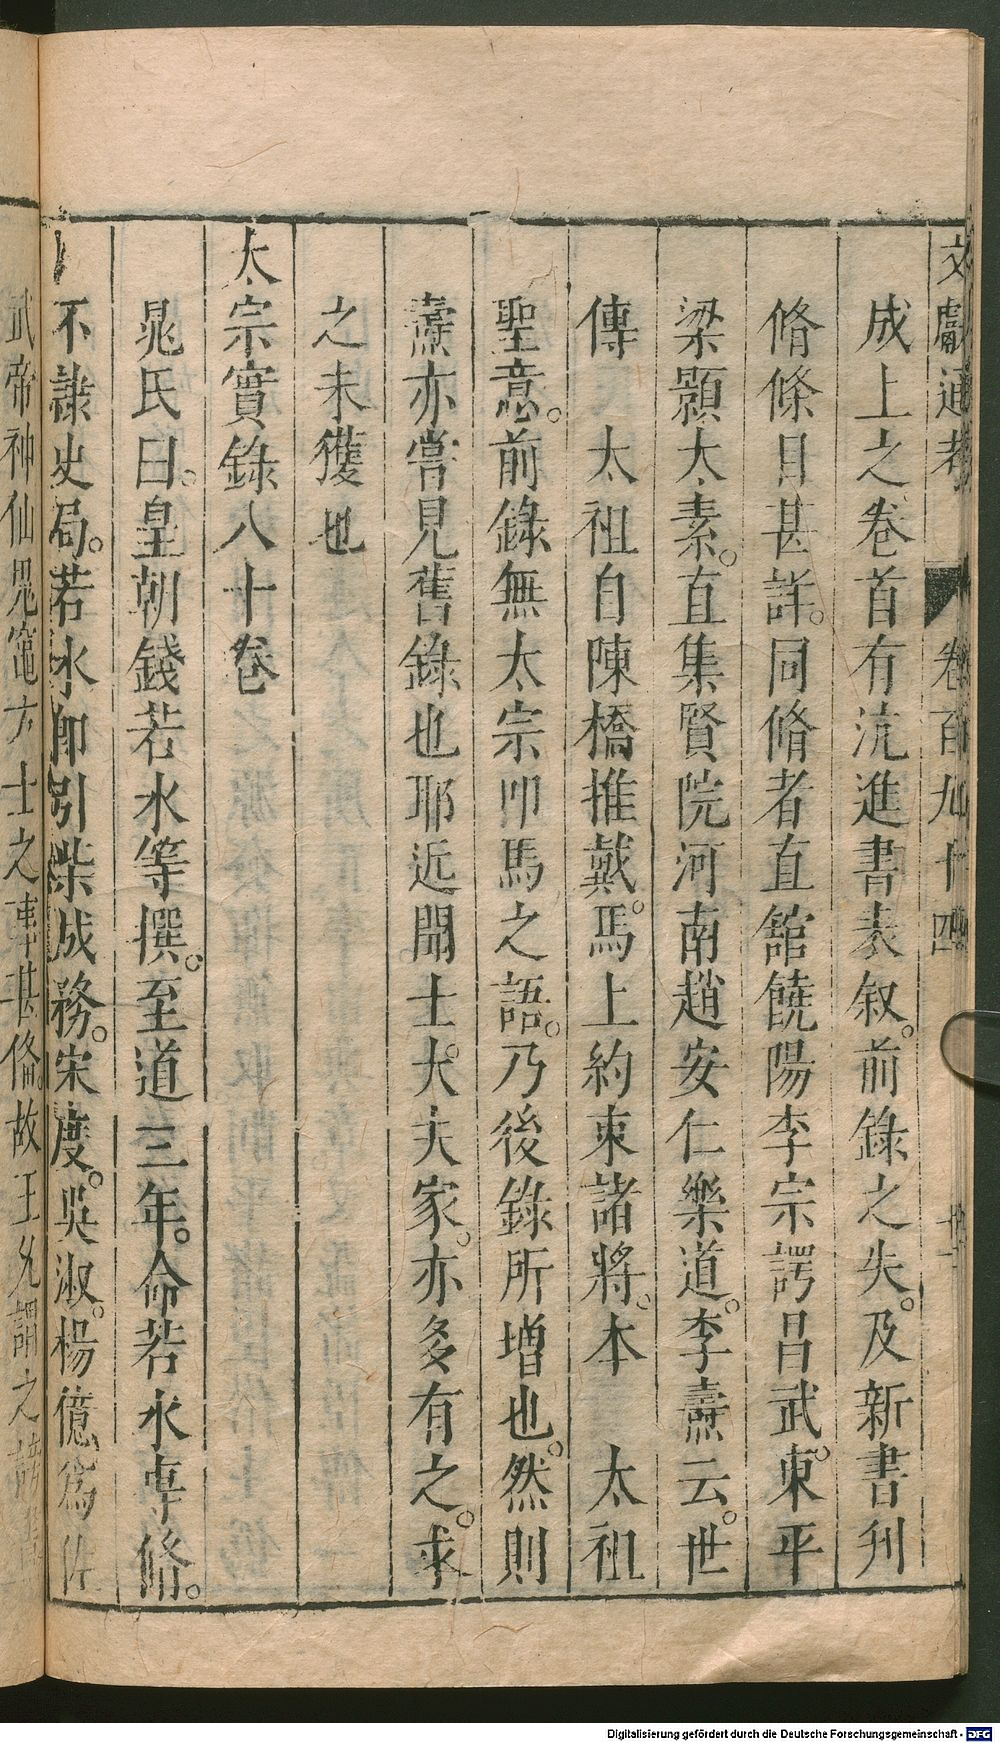 文獻通考 卷百九十四
成上之卷首有沆進書表叙。前錄之失。及新書刋
脩條目甚詳。同脩者直舘饒陽李宗諤昌武。東平
梁顥太素。直集賢院河南趙安仁樂道。李燾云。世
傳 太祖自陳橋推戴。馬上約束諸將。本 太祖
聖意。前錄無太宗叩馬之語。乃後錄所增也。然則
燾亦嘗見舊錄也耶近聞士大夫家。亦多有之。求
之未獲也
太宗實錄八十卷
晁氏曰。皇朝錢若水等撰。至道三年。命若水專脩。
不隷史局。若水卽引柴成務。宋度。吳淑。楊億爲佐
武帝神仙鬼竈方士之事甚俻。故王允謂之謗
Digitalisierung gefördert durch die Deutsche Forschungsgemeinschaft - DFG